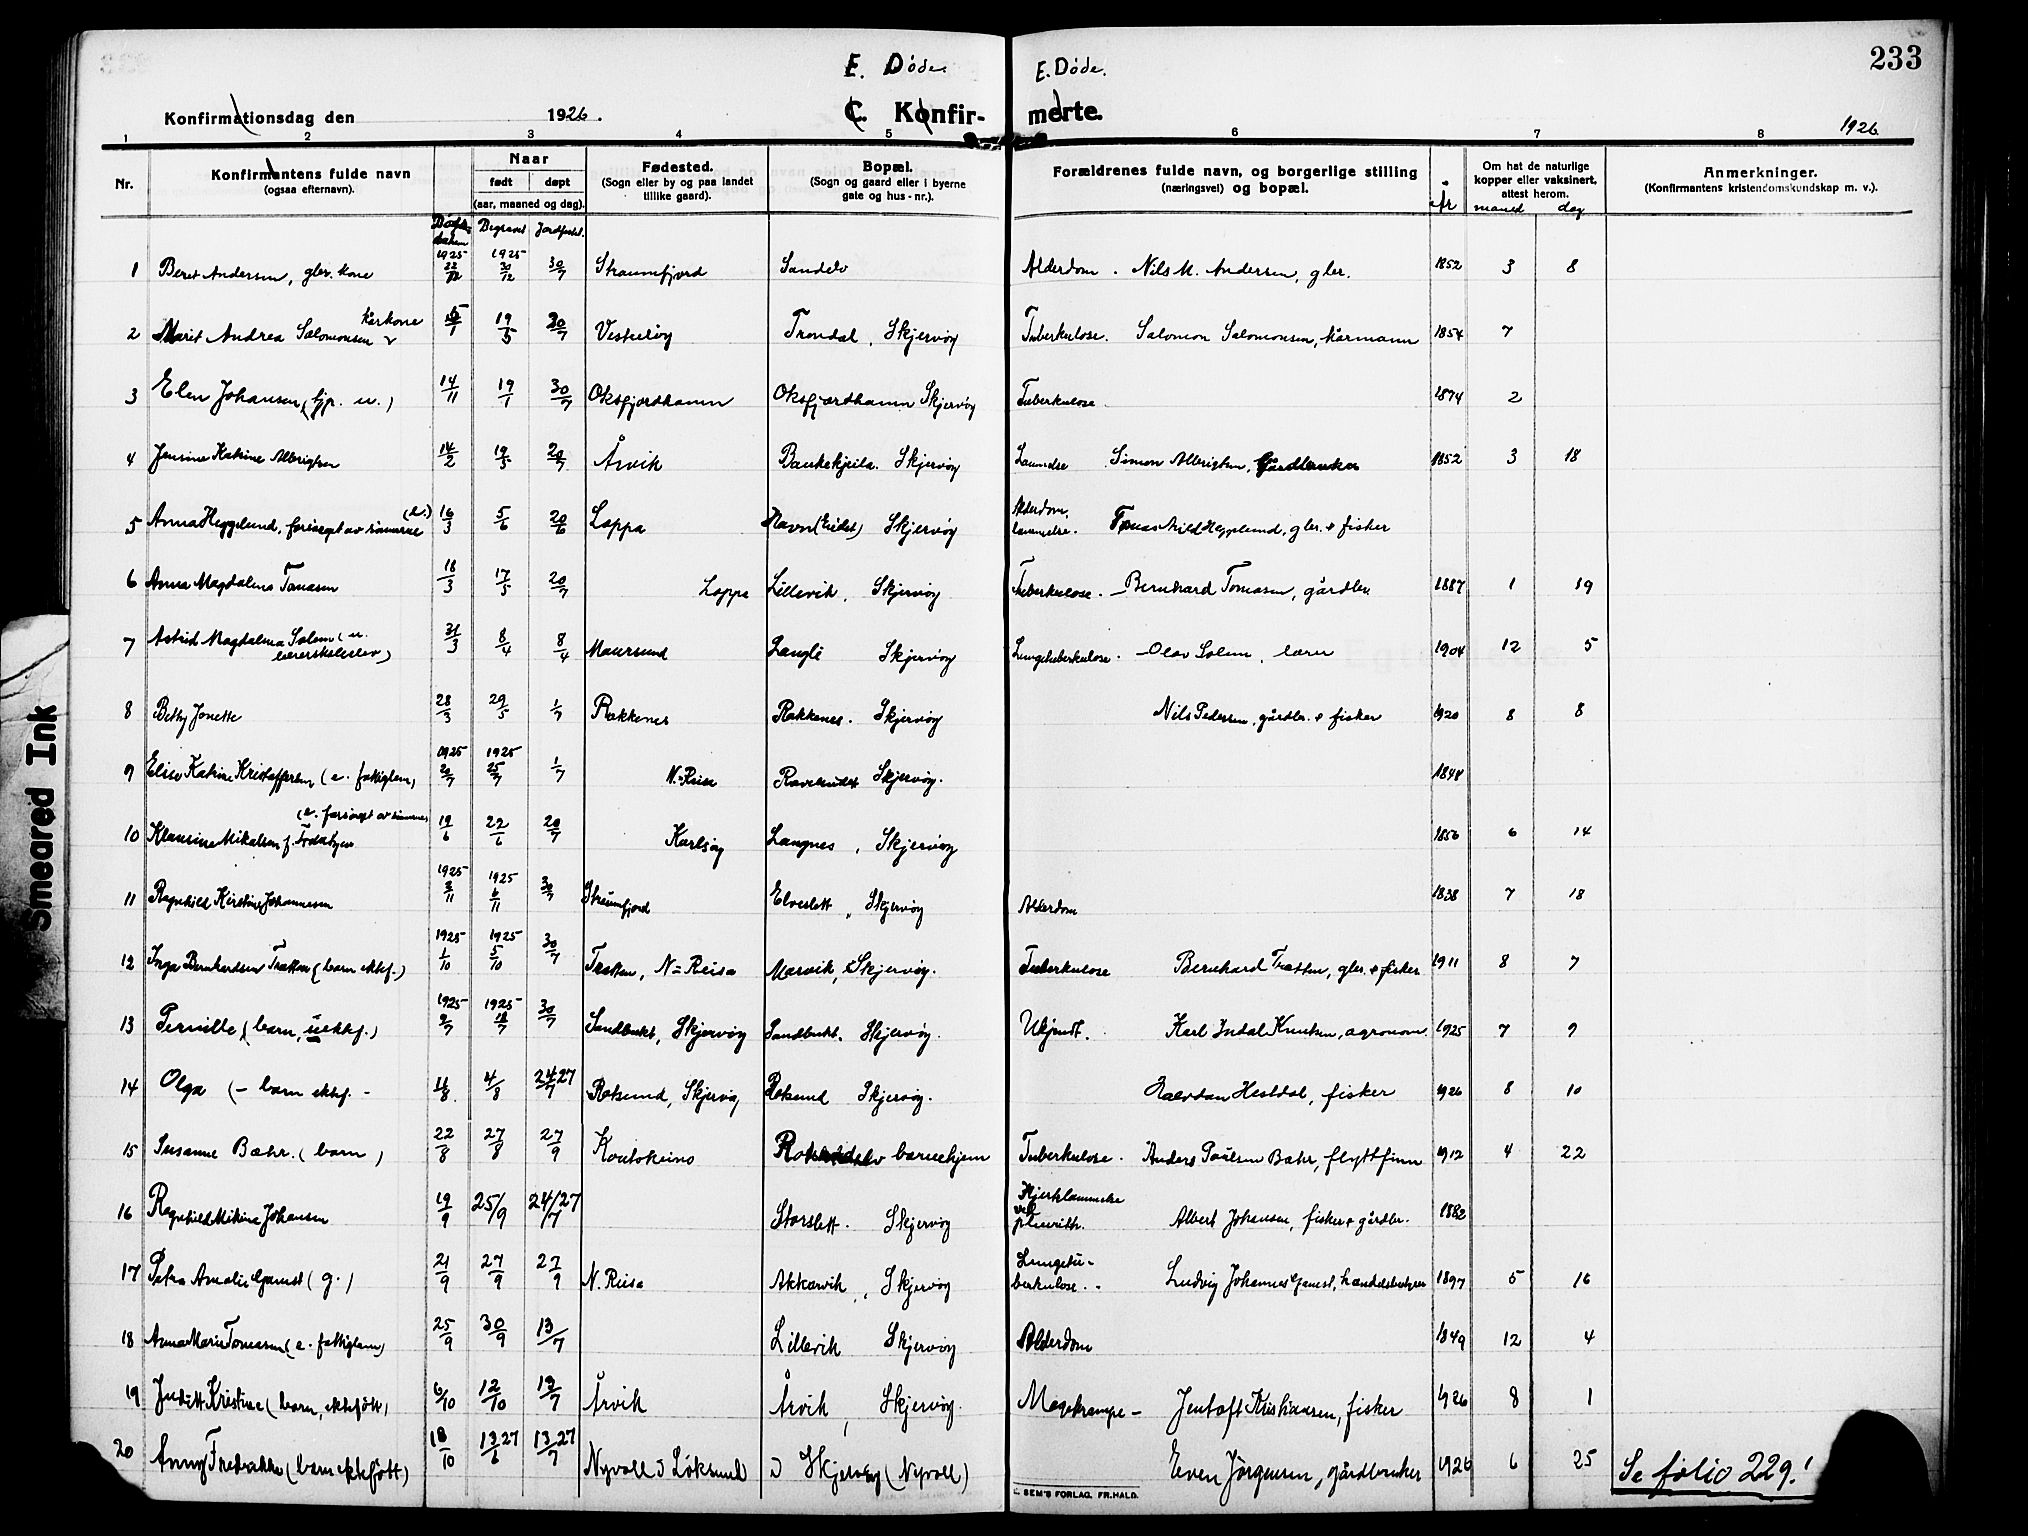 233
E. Døde.
E. Døde.
Konfirmationsdag den 1926.
C. Konfir-
merte.
1926
1 2 3 4 5 6 7 8
Nr.
Konfirmantens fulde navn
(ogsaa efternavn).
Naar
født døpt
(aar, maaned og dag).
Fødested.
(Sogn eller by og paa landet
tillike gaard).
Bopæl.
(Sogn og gaard eller i byerne
gate og hus-nr.).
Forældrenes fulde navn, og borgerlige stilling
(næringsvei) og bopæl.
Om hat de naturlige
kopper eller vaksinert,
attest herom.
Anmerkninger.
(Konfirmantens kristendomskundskap m. v.).
Begravet Jordfæstet. år maaned dag
1 Beret Andersen, gbr. kone 1925 22/12 1925 30/12 30/7 Straumfjord Sandelv Alderdom. Nils M. Andersen, gbr. 1852 3 8
2 Marit Andrea Salomonsen kårkone 19/5 30/7 Trondal, Skjervøy Tuberkulose. Salomon Salomonsen, kårmann 1854 7
3 Elen Johansen (tjp. u.) 14/11 19/1 30/7 Oksfjordhamn Oksfjordhamn Skjervøy Tuberkulose 1874 2
4 Jensine Katrine Albrigtsen 14/2 19/5 20/7 Årvik Bankekjeila. Skjervøy Lammelse Simon Albrigtsen, Gårdbruker 1852 3 18
5 Anna Heggelund, forsørget av sønnerne (e.) 16/3 5/6 20/6 Loppa Havn (Eidet) Skjervøy Alderdom, lammelse. Heggelund, gbr. & fisker
6 Anna Magdalena Tomasen 18/3 17/5 20/7 Loppa Lillevik, Skjervøy Tuberkulose. Bernhard Tomasen, gårdbr. 1887 1 19
7 Astrid Magdalena Solem (u. lærerskoleelev) 31/3 8/4 8/4 Maursund Langli Skjervøy Lungetuberkulose. Olav Solem, lærer 1904 12 5
8 Betty Jonette 28/3 29/5 1/7 Rakkenes Rakkenes. Skjervøy Nils Pedersen, gårdbr. & fisker 1920 8 8
9 Elise Katrine Kristoffersen (e. fattiglem) 1925 20/7 1925 25/7 1/7 N.-Reisa Ravelseidet Skjervøy. 1848
10 Klausine Mikalsen f. (e. forsørget av sønnerne) 19/6 22/6 20/7 Karlsøy Langnes, Skjervøy 1856 6 14
11 Ragnhild Kirstine Johannesen 1925 1925 6/11 30/7 Straumfjord Elveslett, Skjervøy Alderdom 1838 7 18
12 Inga Bernhardsen Tretten (barn ektef.) 1925 1/10 1925 5/10 30/7 Tretten, N=Reisa Marvik, Skjervøy. Tuberkulose Bernhard Tretten, gbr. & fisker 1911 8 7
13 Pernille (barn, uektef.) 1925 9/7 1925 18/7 30/7 Sandbukt, Skjervøy Sandbukt. Skjervøy. Ukjendt. Karl Indal Knutsen, agronom. 1925 7 9
14 Olga (- barn ektef. - 4/8 24/7 27 Rotsund, Skjervøy Rotsund Skjervøy. Halvdan Hestdal, fisker 1926 8 10
15 Susanne Bæhr. (barn) 22/8 27/8 27/9 Koutokeino barnehjem Tuberkulose. Anders Poulsen Bæhr, flyttfinn 1912 4 22
16 Ragnhild Mikine Johansen 19/9 25/9 24/7 27 Storslett. Skjervøy Hjertelammelse ved pleurith. Albert Johansen, fisker & gårdbr. 1882
17 Petra Amalie Gamst (g.) 21/9 27/9 27/9 N. Reisa Akkarvik, Skjervøy Lungetuberkulose.. Ludvig Johannes Gamst, handelsbestyrer 1897 5 16
18 Anna Marie Tomasen (e. fattiglem) 25/9 30/9 13/7 Lillevik Skjervøy Alderdom 1849 12 4
19 Judith Kristine (barn, ektefött) 6/10 12/10 13/7 Årvik Årvik, Skjervøy. Magekrampe - Jentoft Kristiansen, fisker 1926 8 1
20 Anny Fredrikke (barn ektefött) 18/10 13/6 27 13/7 27 Nyvoll i Løksund Skjervøy (Nyvoll) Even Jörgensen, gårdbruker 1926 6 25 Se folio 229!
SEM'S FORLAG, FR.HALD.
Smeared Ink